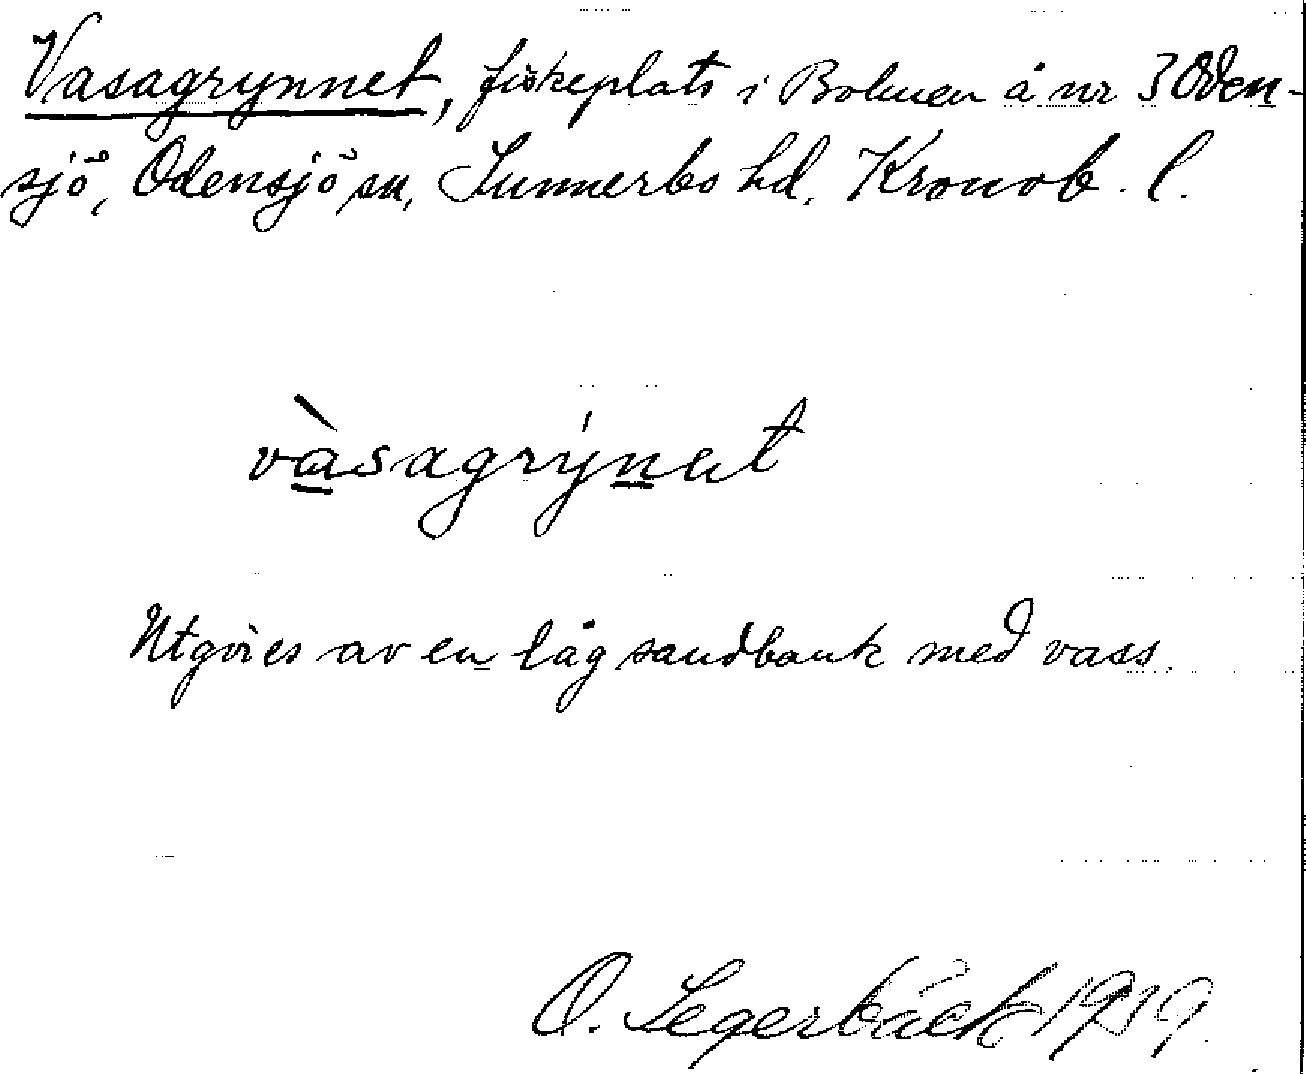 Vasagrynnet, fiskeplats i Bolmen å nr 3 Oden-
sjö, Odensjö sn, Sunnerbo hd, Kronob. l.
vàsagrýnet
Utgöres av en låg sandbank med vass.
O. Segerbäck 1919.